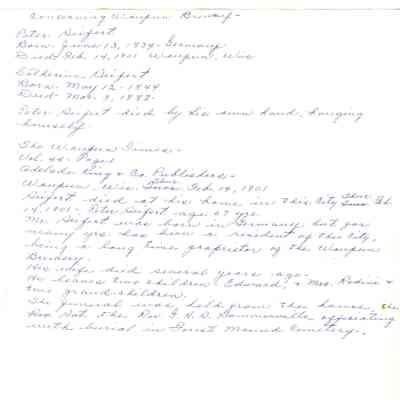 Concerning Waupun Brewery -
Peter Seifert
Born June 13, 1834 - Germany
Died Feb. 14, 1901 Waupun, Wis
Catherine Seifert
Born - May 12 - 1844
Died - Mar. 9, 1888 -
Peter Seifert died by his own hand, hanging
himself.
The Waupun Times -
Vol. 44 - Page 1
Adelade King & Co. Publishers -
Waupun, Wis. Feb. 19, 1901
Seifert died at his home in this City Thur. Feb.
14, 1901 - Peter Seifert age 67 yrs.
Mr. Seifert was born in Germany but for
many yrs has been a resident of this city,
being a long time proprietor of the Waupun
Brewery.
His wife died several years ago.
He leaves two children Edward, & Mrs. &
two grand-children.
The funeral was held from the home,
Sat. the Rev. officiating
with burial in Forest Mound Cemetery.